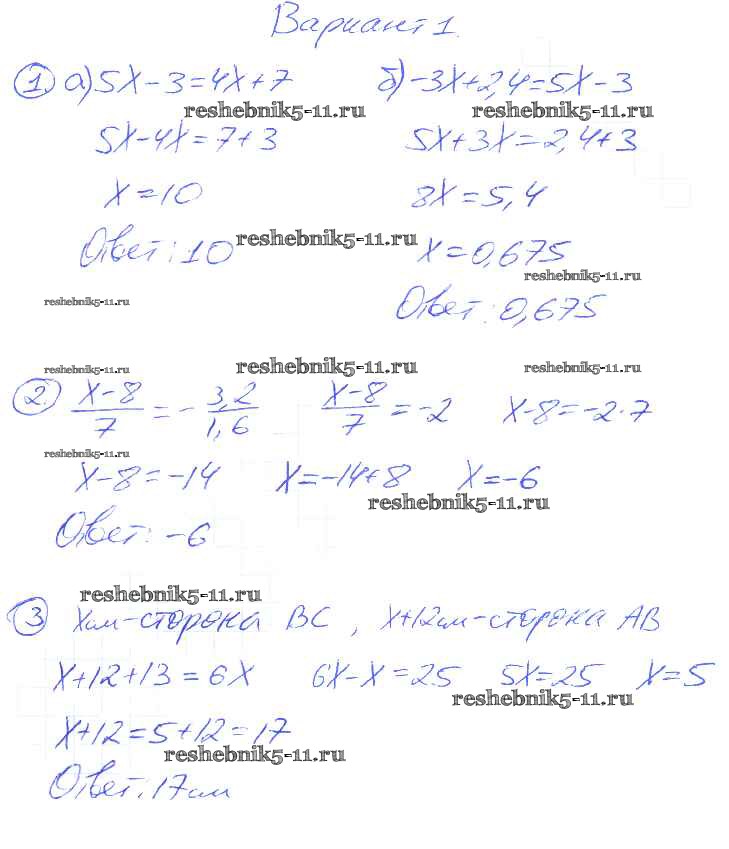 Вариант 1.
1. а) 5x-3=4x+7 б) -3x+2,4=5x-3
reshebnik5-11.ru reshebnik5-11.ru
5x-4x=7+3 5x+3x=2,4+3
x=10 8x=5,4
Ответ: 10 reshebnik5-11.ru x=0,675
reshebnik5-11.ru
reshebnik5-11.ru Ответ: 0,675
reshebnik5-11.ru reshebnik5-11.ru reshebnik5-11.ru
2. (x-8)/7=-3,2/1,6 (x-8)/7=-2 x-8=-2·7
reshebnik5-11.ru
x-8=-14 x=-14+8 x=-6
reshebnik5-11.ru
Ответ: -6
reshebnik5-11.ru
3 xсм-сторона BC, x+12см-сторона AB
x+12+13=6x 6x-x=25 5x=25 x=5
reshebnik5-11.ru
x+12=5+12=17
reshebnik5-11.ru
Ответ: 17см